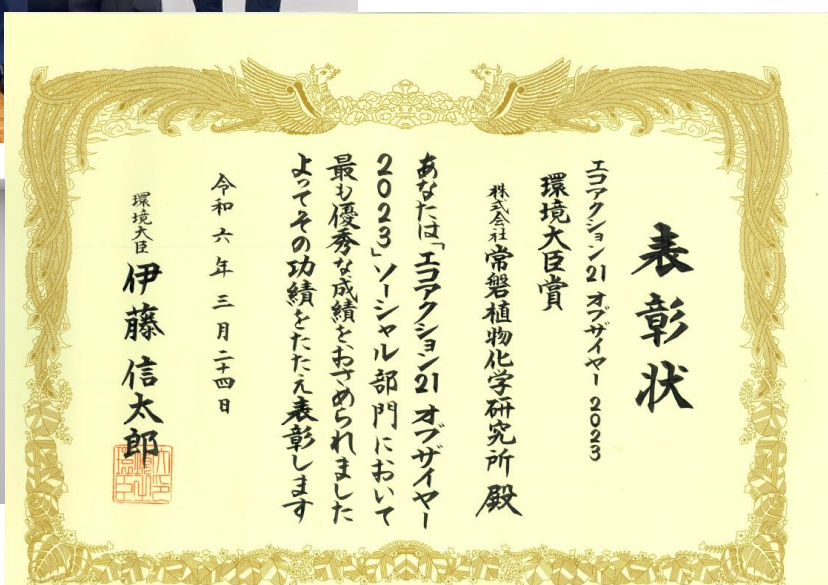 表彰状
エコアクション21 オブザイヤー 2023
環境大臣賞
株式会社 常磐植物化学研究所 殿
あなたは「エコアクション21 オブザイヤー
2023」ソーシャル部門において
最も優秀な成績をおさめられました
よってその功績をたたえ表彰します
令和六年三月二十四日
環境大臣 伊藤信太郎